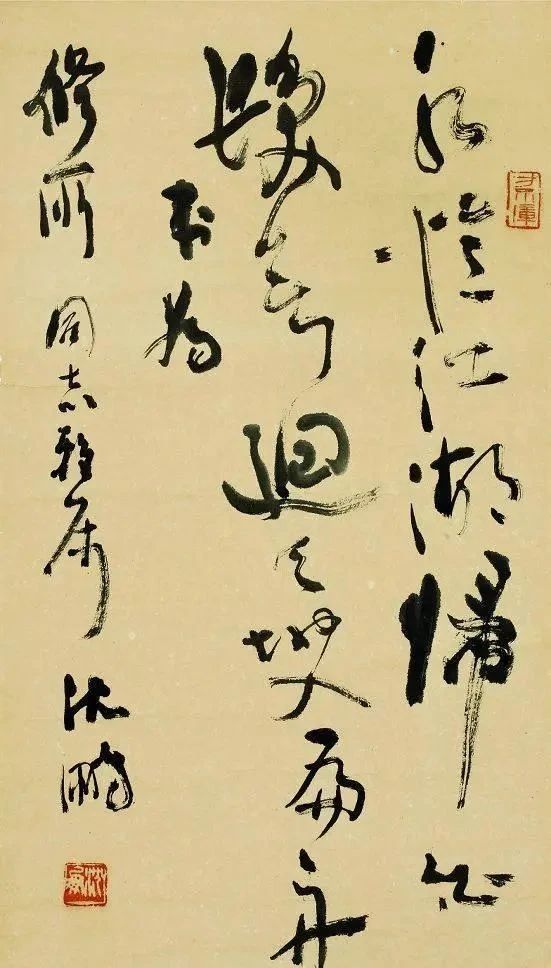 永憶江湖歸白
髮欲迴天地入扁舟
书为
修所同志雅属 沈鹏